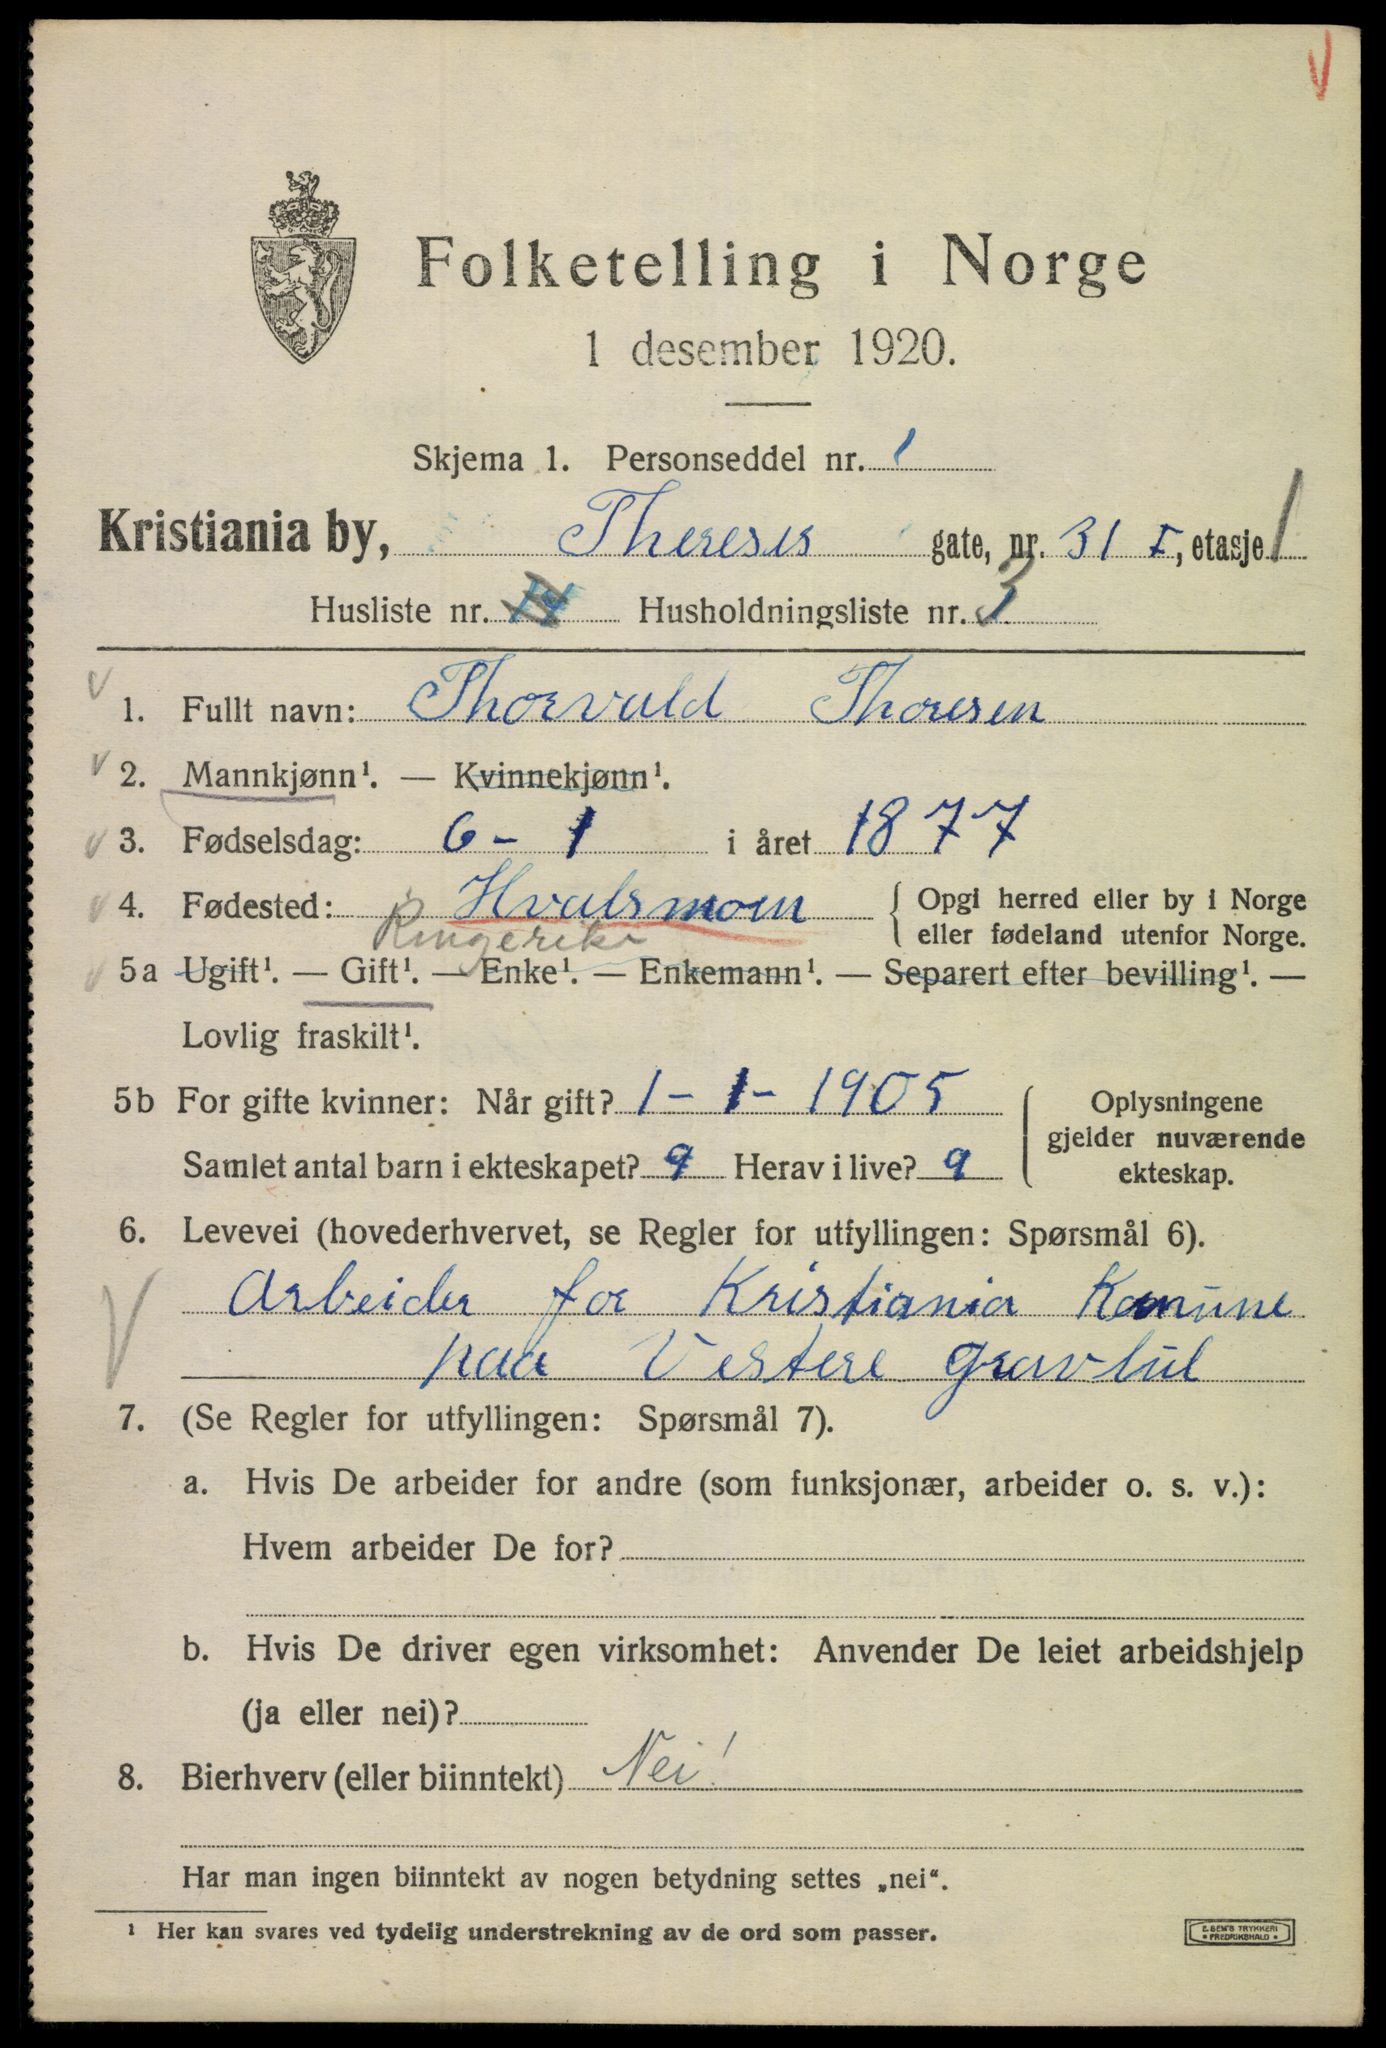 Folketelling i Norge
1 desember 1920.
Skjema 1. Personseddel nr. 1
Kristiania by, Thereses gate, nr. 31 I, etasje 1
Husliste nr. Husholdningsliste nr. 3
1. Fullt navn: Thorvald Thoresen
2. Mannkjønn¹. — Kvinnekjønn¹.
3. Fødselsdag: 6 - 1 i året 1877
4. Fødested: Hvalsmoen { Opgi herred eller by i Norge
Ringerike eller fødeland utenfor Norge.
5a Ugift¹. — Gift¹. — Enke¹. — Enkemann¹. — Separert efter bevilling¹. —
Lovlig fraskilt¹.
5b For gifte kvinner: Når gift? 1 - 1 - 1905 { Oplysningene
gjelder nuværende
Samlet antal barn i ekteskapet? 9 Herav i live? 9 ekteskap.
6. Levevei (hovederhvervet, se Regler for utfyllingen: Spørsmål 6).
Arbeider for Kristiania Komune
paa Vestere gravlul
7. (Se Regler for utfyllingen: Spørsmål 7).
a. Hvis De arbeider for andre (som funksjonær, arbeider o. s. v.):
Hvem arbeider De for?
b. Hvis De driver egen virksomhet: Anvender De leiet arbeidshjelp
(ja eller nei)?
8. Bierhverv (eller biinntekt) Nei!
Har man ingen biinntekt av nogen betydning settes „nei“.
¹ Her kan svares ved tydelig understrekning av de ord som passer.
E. SEM'S TRYKKERI
• FREDRIKSHALD •